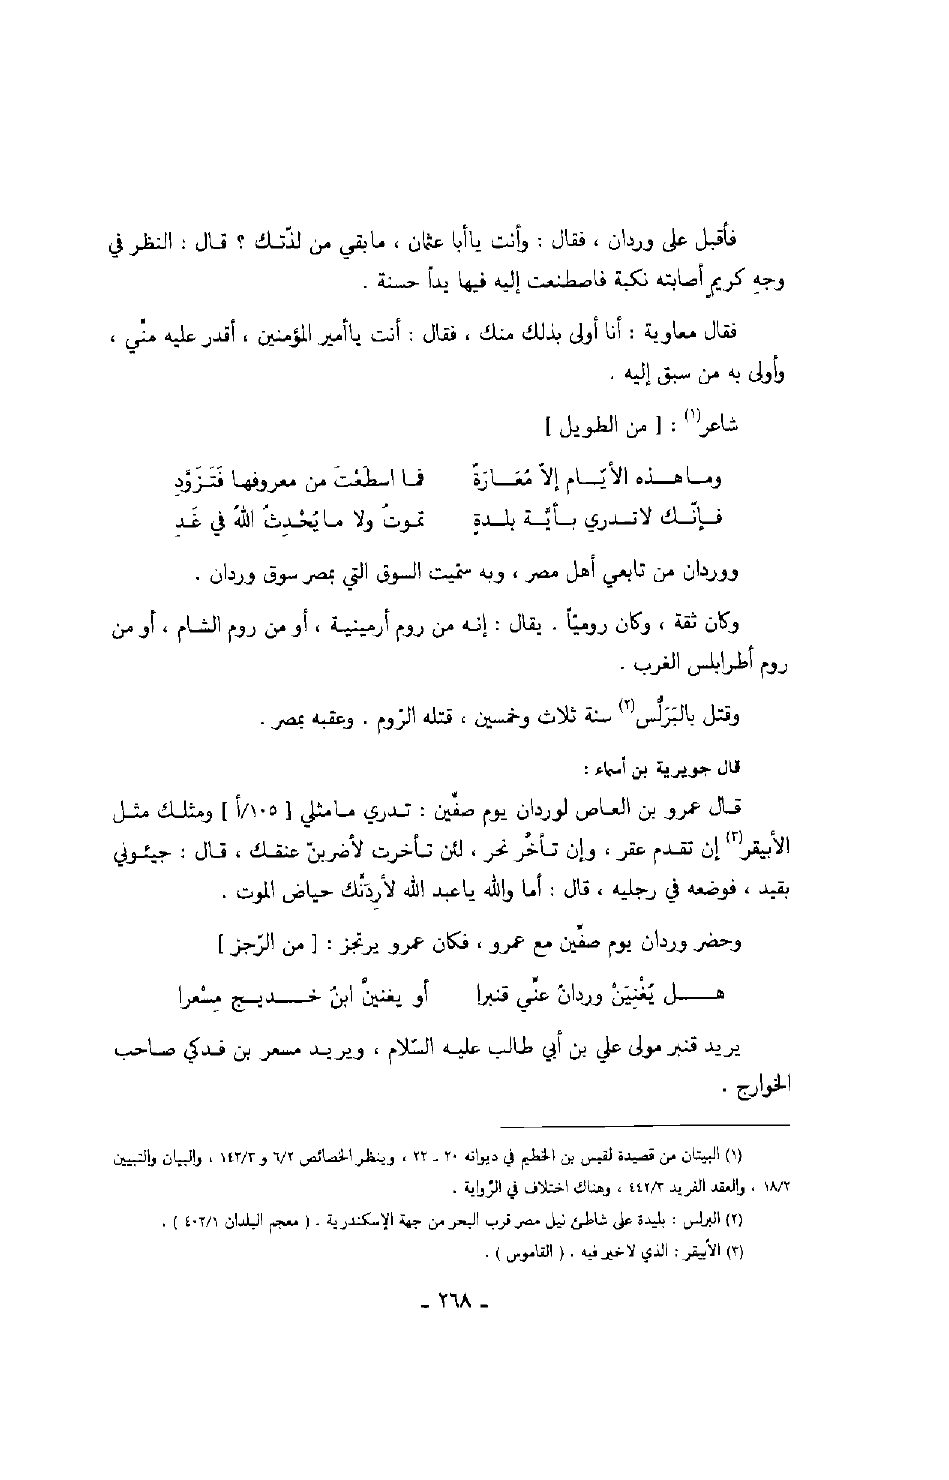 فأقبل على وردان ، فقال : وأنت ياأبا عثمان ، مابقي من لذّتك ؟ قال : النظر في
وجهِ كريمٍ أصابته نكبة فاصطنعت إليه فيها يداً حسنة .
فقال معاوية : أنا أولى بذلك منك ، فقال : أنت ياأمير المؤمنين ، أقدر عليه منّي ،
وأولى به من سبق إليه .
شاعر(١) : [ من الطويل ]
وما هذه الأيّام إلاّ مُعَارَةٌ فما اسطَعْتَ من معروفها فَتَزَوَّدِ
فإنّك لاتدري بأيّة بلدةٍ تموتُ ولا مايُحْدِثُ اللهُ في غَدِ
ووردان من تابعي أهل مصر ، وبه سمّيت السوق التي بمصر سوق وردان .
وكان ثقة ، وكان روميّاً . يقال : إنه من روم أرمينية ، أو من روم الشام ، أو من
روم أطرابلس الغرب .
وقتل بالبَرَلُّس(٢) سنة ثلاث وخمسين ، قتله الرّوم . وعقبه بمصر .
قال جويرية بن أسماء :
قال عمرو بن العاص لوردان يوم صفّين : تدري مامثلي [ ١٠٥/أ ] ومثلك مثل
الأبيقر(٣) إن تقدم عقر ، وإن تأخّر نحر ، لئن تأخرت لأضربنّ عنقك ، قال : جيئوني
بقيد ، فوضعه في رجليه ، قال : أما والله ياعبد الله لأردَنّك حياض الموت .
وحضر وردان يوم صفّين مع عمرو ، فكان عمرو يرتجز : [ من الرّجز ]
هل يُغْنِيَنْ وردانُ عنّي قنبرا أو يغنينَّ ابنُ خديج مِسْعرا
يريد قنبر مولى علي بن أبي طالب عليه السّلام ، ويريد مسعر بن فدكي صاحب
الخوارج .
(١) البيتان من قصيدة لقيس بن الخطيم في ديوانه ٢٠ ـ ٢٢ ، وينظر الخصائص ٦/٢ و ١٤٣/٣ ، والبيان والتبيين
١٨/٢ ، والعقد الفريد ٤٤٢/٣ ، وهناك اختلاف في الرّواية .
(٢) البرلس : بليدة على شاطئ نيل مصر قرب البحر من جهة الإسكندرية . ( معجم البلدان ٤٠٢/١ ) .
(٣) الأبيقر : الذي لاخير فيه . ( القاموس ) .
ـ ٢٦٨ ـ